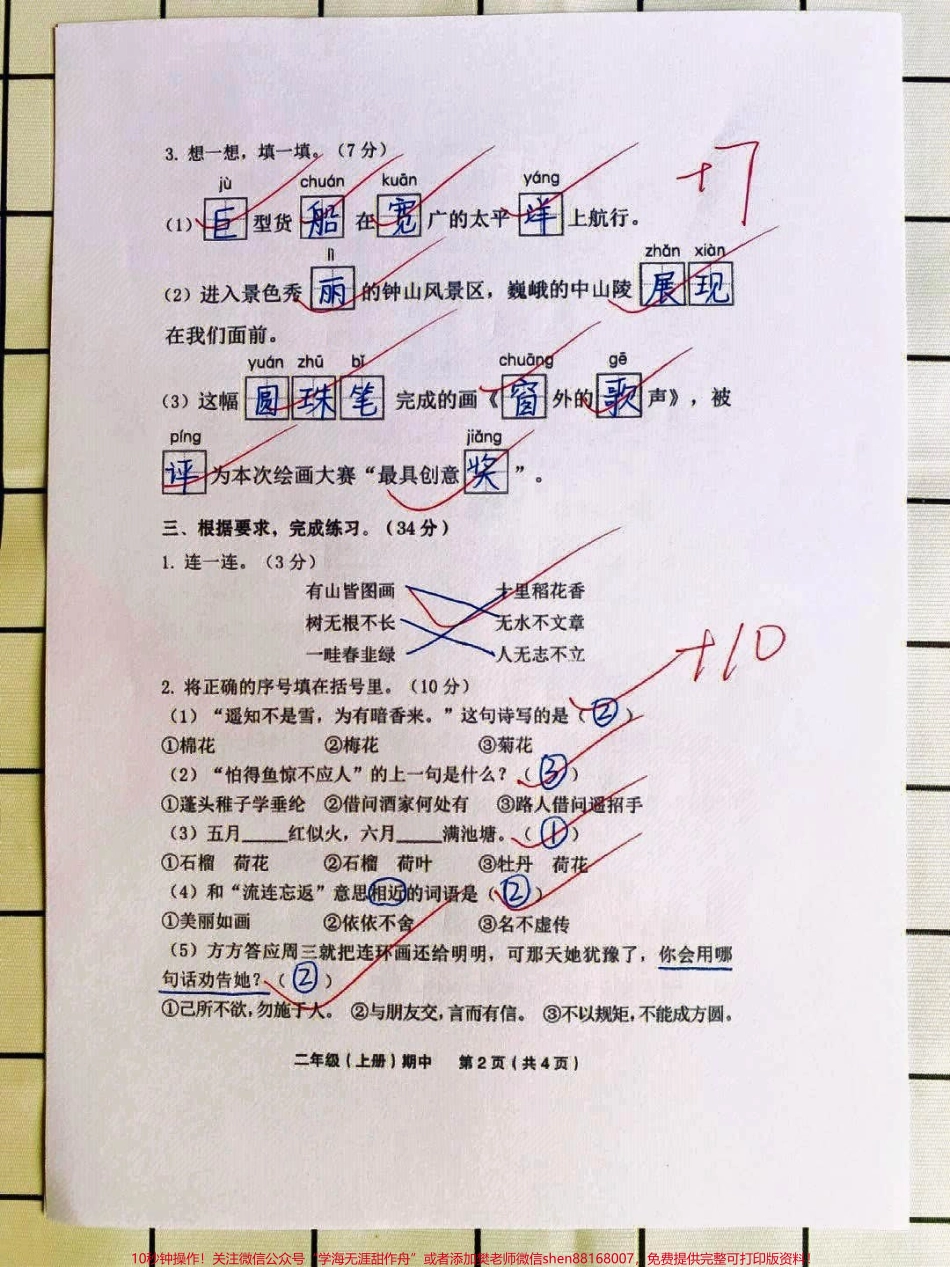 3. 想一想，填一填。（7 分）
+7
jù chuán kuān yáng
（1）巨型货船在宽广的太平洋上航行。
lì zhǎn xiàn
（2）进入景色秀丽的钟山风景区，巍峨的中山陵展现
在我们面前。
yuán zhū bǐ chuāng gē
（3）这幅圆珠笔完成的画《窗外的歌声》，被
píng jiǎng
评为本次绘画大赛“最具创意奖”。
三、根据要求，完成练习。（34 分）
1. 连一连。（3 分）
有山皆图画 十里稻花香
树无根不长 无水不文章
一畦春韭绿 人无志不立
+10
2. 将正确的序号填在括号里。（10 分）
（1）“遥知不是雪，为有暗香来。”这句诗写的是（②）
①棉花 ②梅花 ③菊花
（2）“怕得鱼惊不应人”的上一句是什么？（③）
①蓬头稚子学垂纶 ②借问酒家何处有 ③路人借问遥招手
（3）五月____红似火，六月____满池塘。（①）
①石榴 荷花 ②石榴 荷叶 ③牡丹 荷花
（4）和“流连忘返”意思相近的词语是（②）
①美丽如画 ②依依不舍 ③名不虚传
（5）方方答应周三就把连环画还给明明，可那天她犹豫了，你会用哪
句话劝告她？（②）
①己所不欲，勿施于人。 ②与朋友交，言而有信。 ③不以规矩，不能成方圆。
二年级（上册）期中 第 2 页（共 4 页）
10秒钟操作！关注微信公众号“学海无涯甜作舟”或者添加樊老师微信shen88168007，免费提供完整可打印版资料！